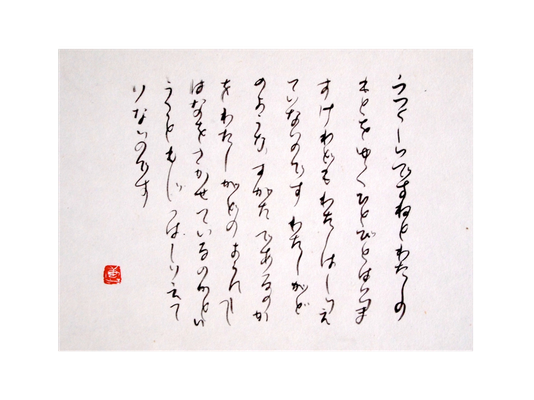 うつくしいですねとわたしの
をゆくひとびとはいいま
すけれどもわたしはしりえ
ていないのです わたしがど
のようなすがたであるのか
をわたしがどの
はなをさかせているのかとい
うことも じつはしりえて
いないのです